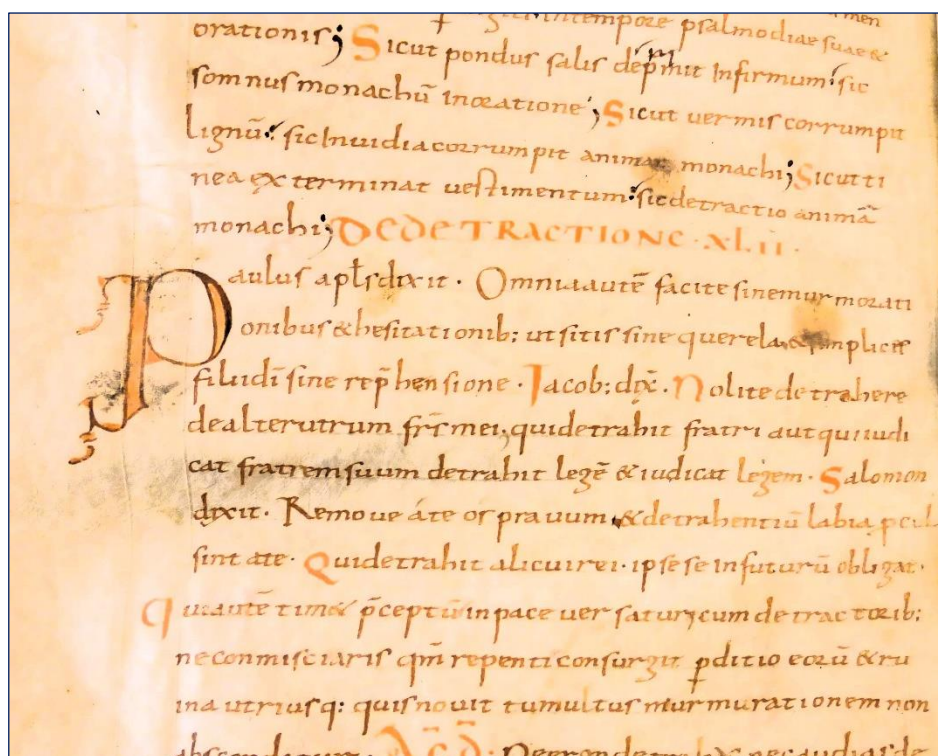 intempore psalmodiae suae &
orationis; Sicut pondus salis dep̄mit Infirmum: sic
somnus monachū Inoratione; Sicut uermis corrumpit
lignū: sic Inuidia corrumpit animas monachi; Sicut ti
nea exterminat uestimentum: sic detractio animā
monachi; DE DETRACTIONE · XLII ·
Paulus apl̄s dixit · Omnia autē facite sine murmorati
onibus & hesitationib: ut sitis sine querela, & simplices
filii dī sine rep̄hensione · Jacob: dix̄ · Nolite detrahere
de alterutrum fr̄s mei, qui detrahit fratri aut qui iudi
cat fratrem suum detrahit legē & iudicat legem · Salomon
dixit · Remoue a te os prauum, & detrahentiū labia ꝓcul
sint a te · Qui detrahit alicui rei · ipse se In futurū obligat ·
Qui autē tim& p̄ceptū in pace uersatur, cum detractorib:
ne conmisciaris qm̄ repenti consurgit ꝑditio eorū & ru
ina utriusq: quis nouit tumultus murmurationem non